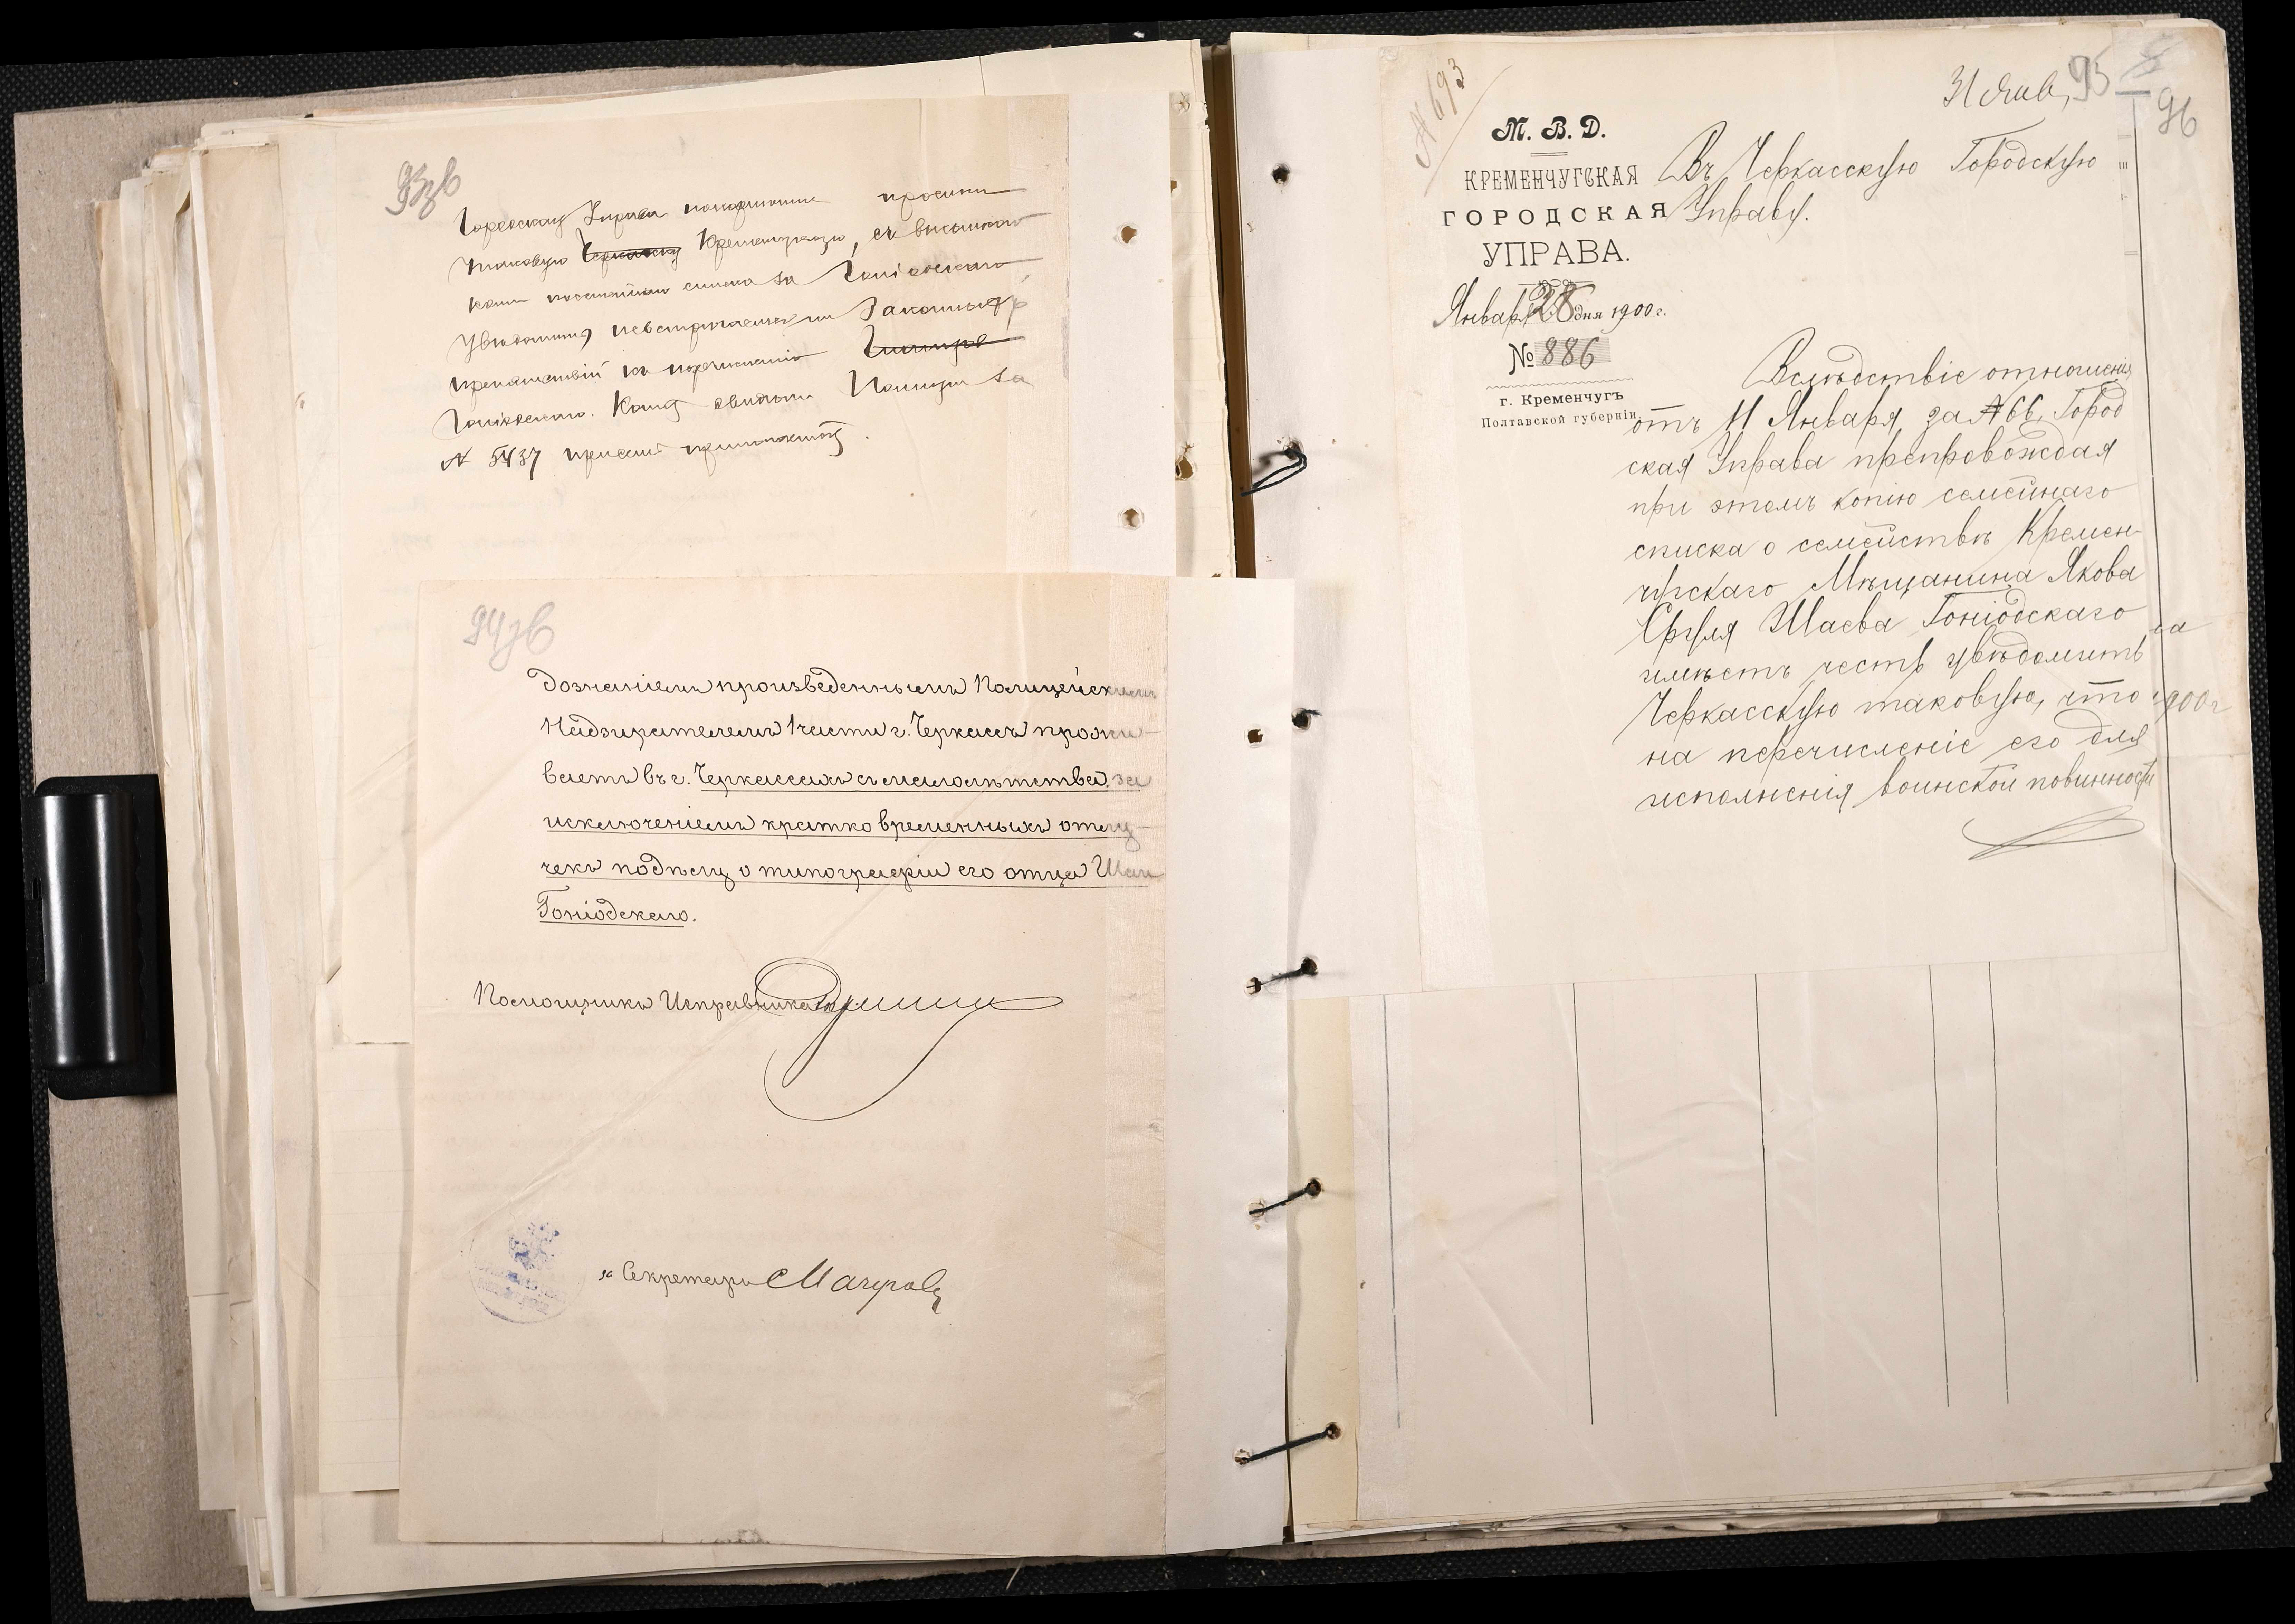 93зв
Городская Управа покорнейше просит
таковую Черкасскую Кременчугскую, съ высылкою
копіи посемейнаго списка
Гоніодскаго
увѣдомить невстрѣчается ли законныхъ
препятствій къ перечисленію
Гоніодскаго. Копія
за
№ 5437 при семъ
94зв
дознаніемъ произведеннымъ Полицейскимъ
Надзирателемъ 1 части г. Черкассъ прожи-
ваетъ въ г. Черкассахъ съ малолѣтства, за
исключеніемъ кратковременныхъ отлу-
чекъ по дѣлу о типографіи его отца Шаи
Гоніодскаго.
Помощникъ Исправника
за Секретаря
№ 693
31 Янв, 95
96
М. В. Д.
КРЕМЕНЧУГСКАЯ
ГОРОДСКАЯ
УПРАВА.
Января 28 дня 1900 г.
№ 886
г. Кременчугъ
Полтавской губерніи.
Въ Черкасскую Городскую
Управу.
Вслѣдствіе отношенія
отъ 11 Января за № 66, Город
ская Управа препровождая
при этомъ копію семейнаго
списка о семействѣ Кремен-
чугскаго Мѣщанина Якова
Сруля Шаева Гоніодскаго
имѣетъ честь увѣдомить
Черкасскую таковую, что
на перечисленіе его для
исполненія воинской повинности
1900 г